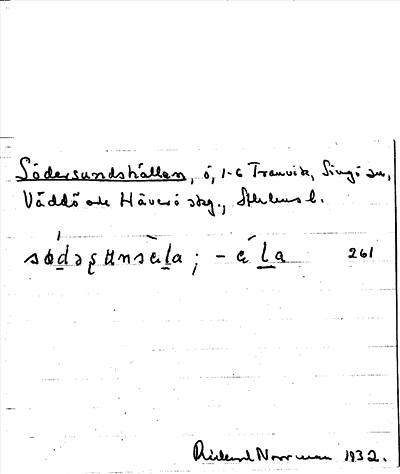 Södersundshällan, ö, 1-6 Tranvik, Singö sn,
Väddö och Häverö skg., Sthlms l.
södəʂʉnsɛla; - ɛla 261
Rickard Norrman 1932.